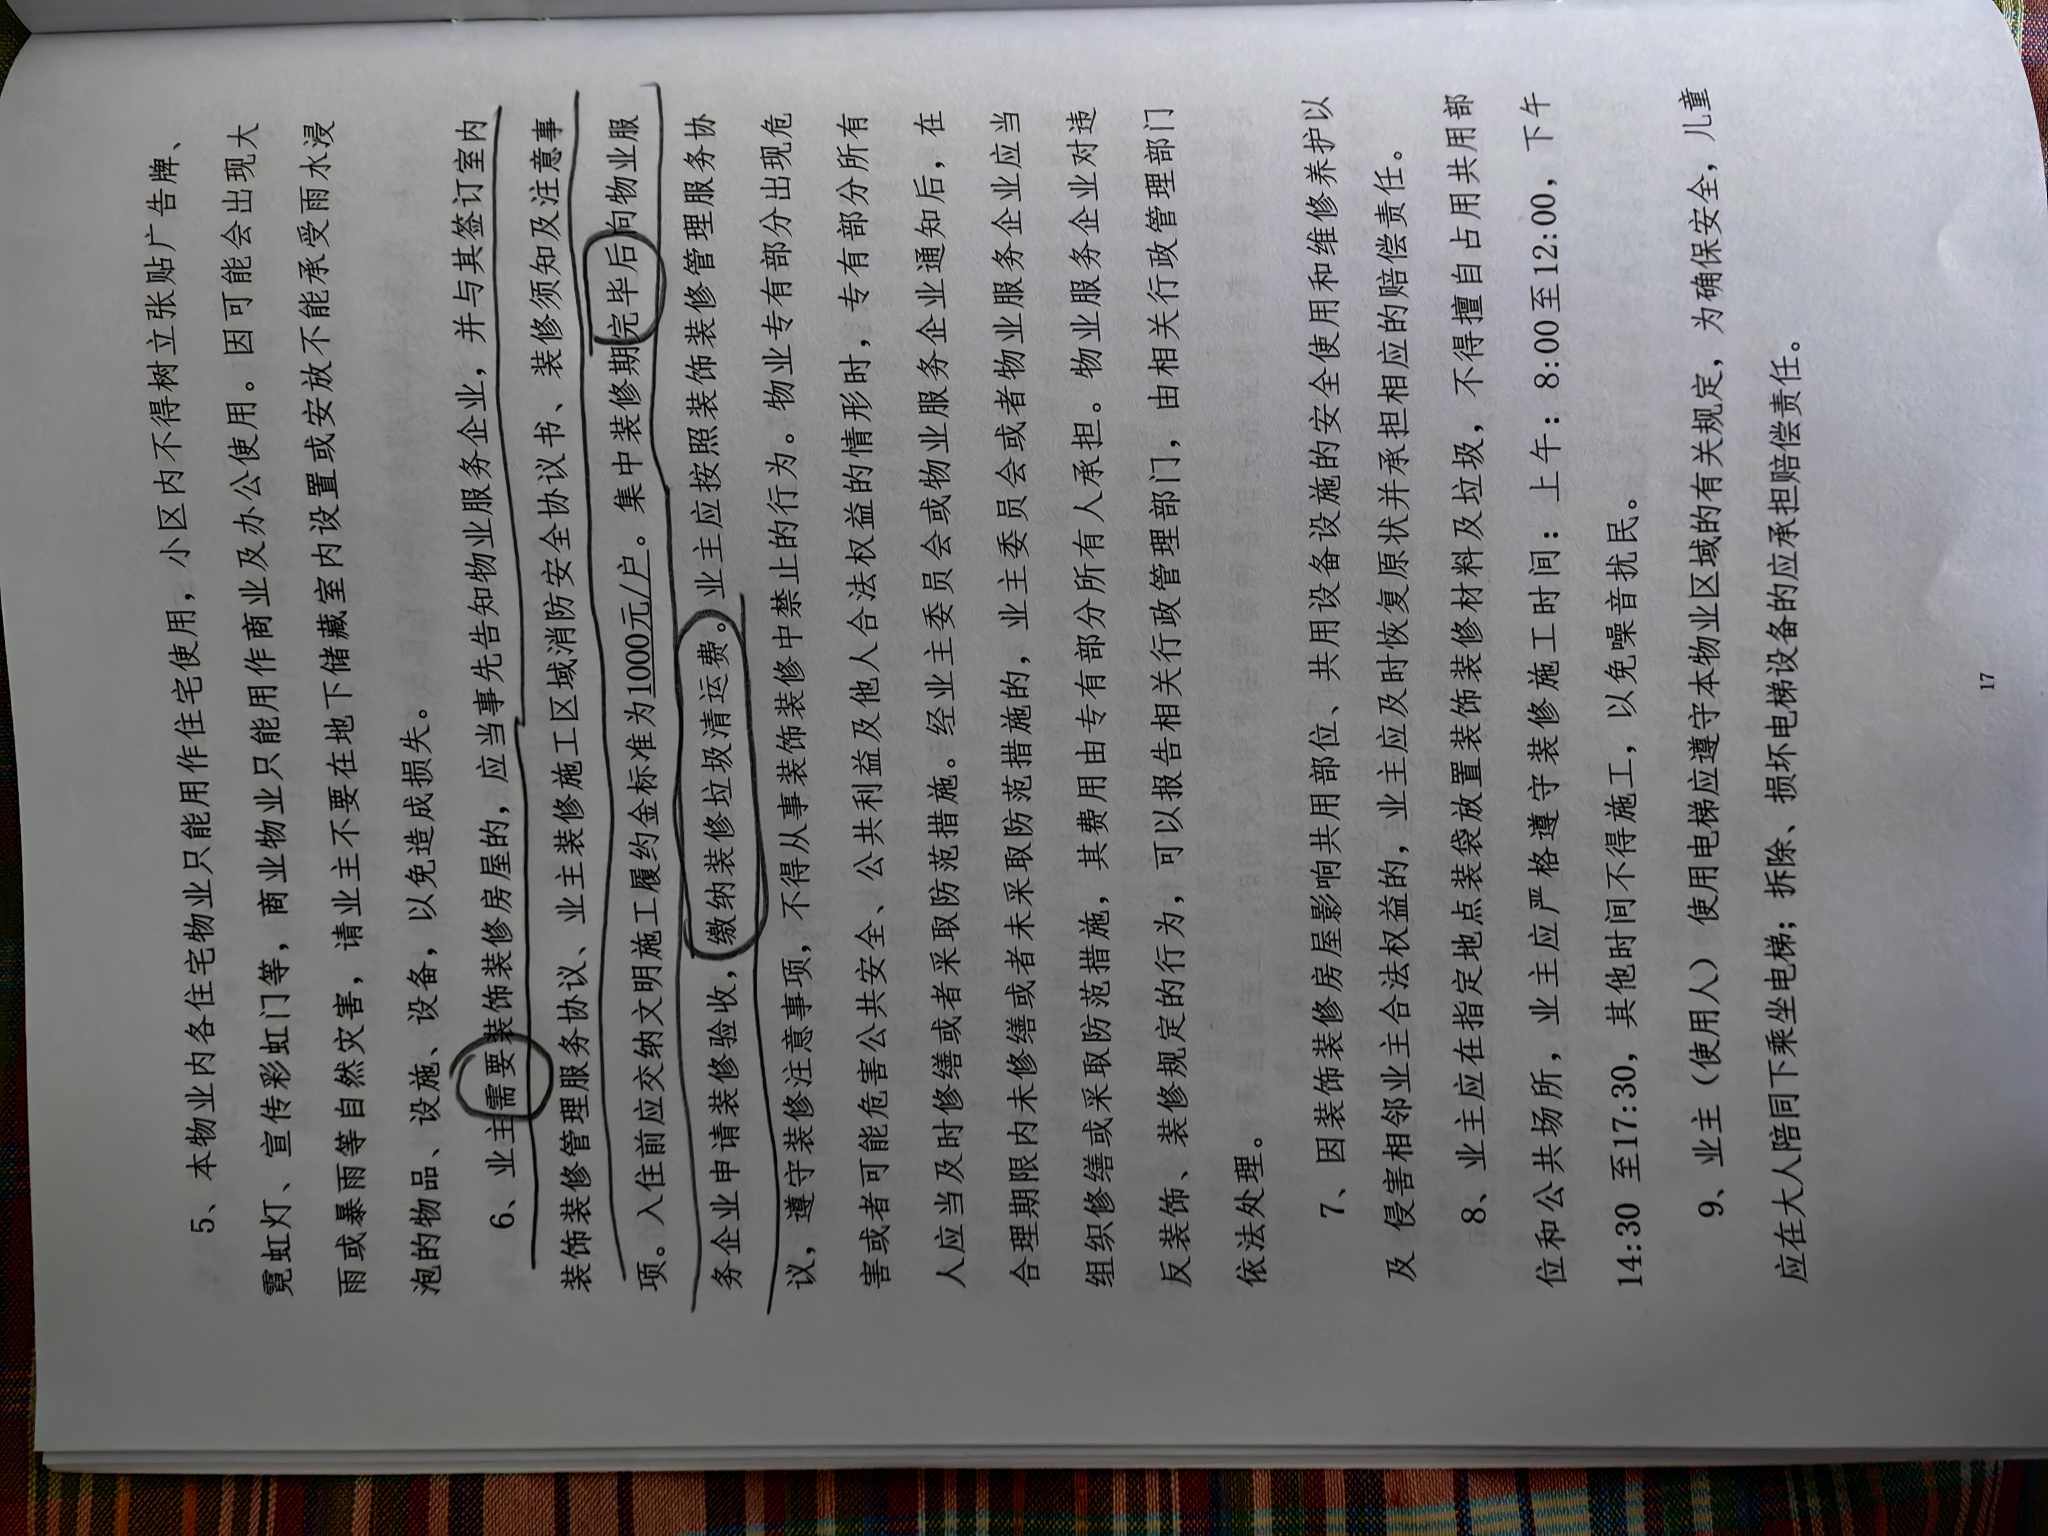 5、本物业内各住宅物业只能用作住宅使用，小区内不得树立张贴广告牌、
霓虹灯、宣传彩虹门等，商业物业只能用作商业及办公使用。因可能会出现大
雨或暴雨等自然灾害，请业主不要在地下储藏室内设置或安放不能承受雨水浸
泡的物品、设施、设备，以免造成损失。
6、业主需要装饰装修房屋的，应当事先告知物业服务企业，并与其签订室内
装饰装修管理服务协议、业主装修施工区域消防安全协议书、装修须知及注意事
项。入住前应交纳文明施工履约金标准为1000元/户。集中装修期完毕后向物业服
务企业申请装修验收，缴纳装修垃圾清运费。业主应按照装饰装修管理服务协
议，遵守装修注意事项，不得从事装饰装修中禁止的行为。物业专有部分出现危
害或者可能危害公共安全、公共利益及他人合法权益的情形时，专有部分所有
人应当及时修缮或者采取防范措施。经业主委员会或物业服务企业通知后，在
合理期限内未修缮或者未采取防范措施的，业主委员会或者物业服务企业应当
组织修缮或采取防范措施，其费用由专有部分所有人承担。物业服务企业对违
反装饰、装修规定的行为，可以报告相关行政管理部门，由相关行政管理部门
依法处理。
7、因装饰装修房屋影响共用部位、共用设备设施的安全使用和维修养护以
及 侵害相邻业主合法权益的，业主应及时恢复原状并承担相应的赔偿责任。
8、业主应在指定地点装袋放置装饰装修材料及垃圾，不得擅自占用共用部
位和公共场所，业主应严格遵守装修施工时间：上午：8:00至12:00，下午
14:30 至17:30，其他时间不得施工，以免噪音扰民。
9、业主（使用人）使用电梯应遵守本物业区域的有关规定，为确保安全，儿童
应在大人陪同下乘坐电梯；拆除、损坏电梯设备的应承担赔偿责任。
17